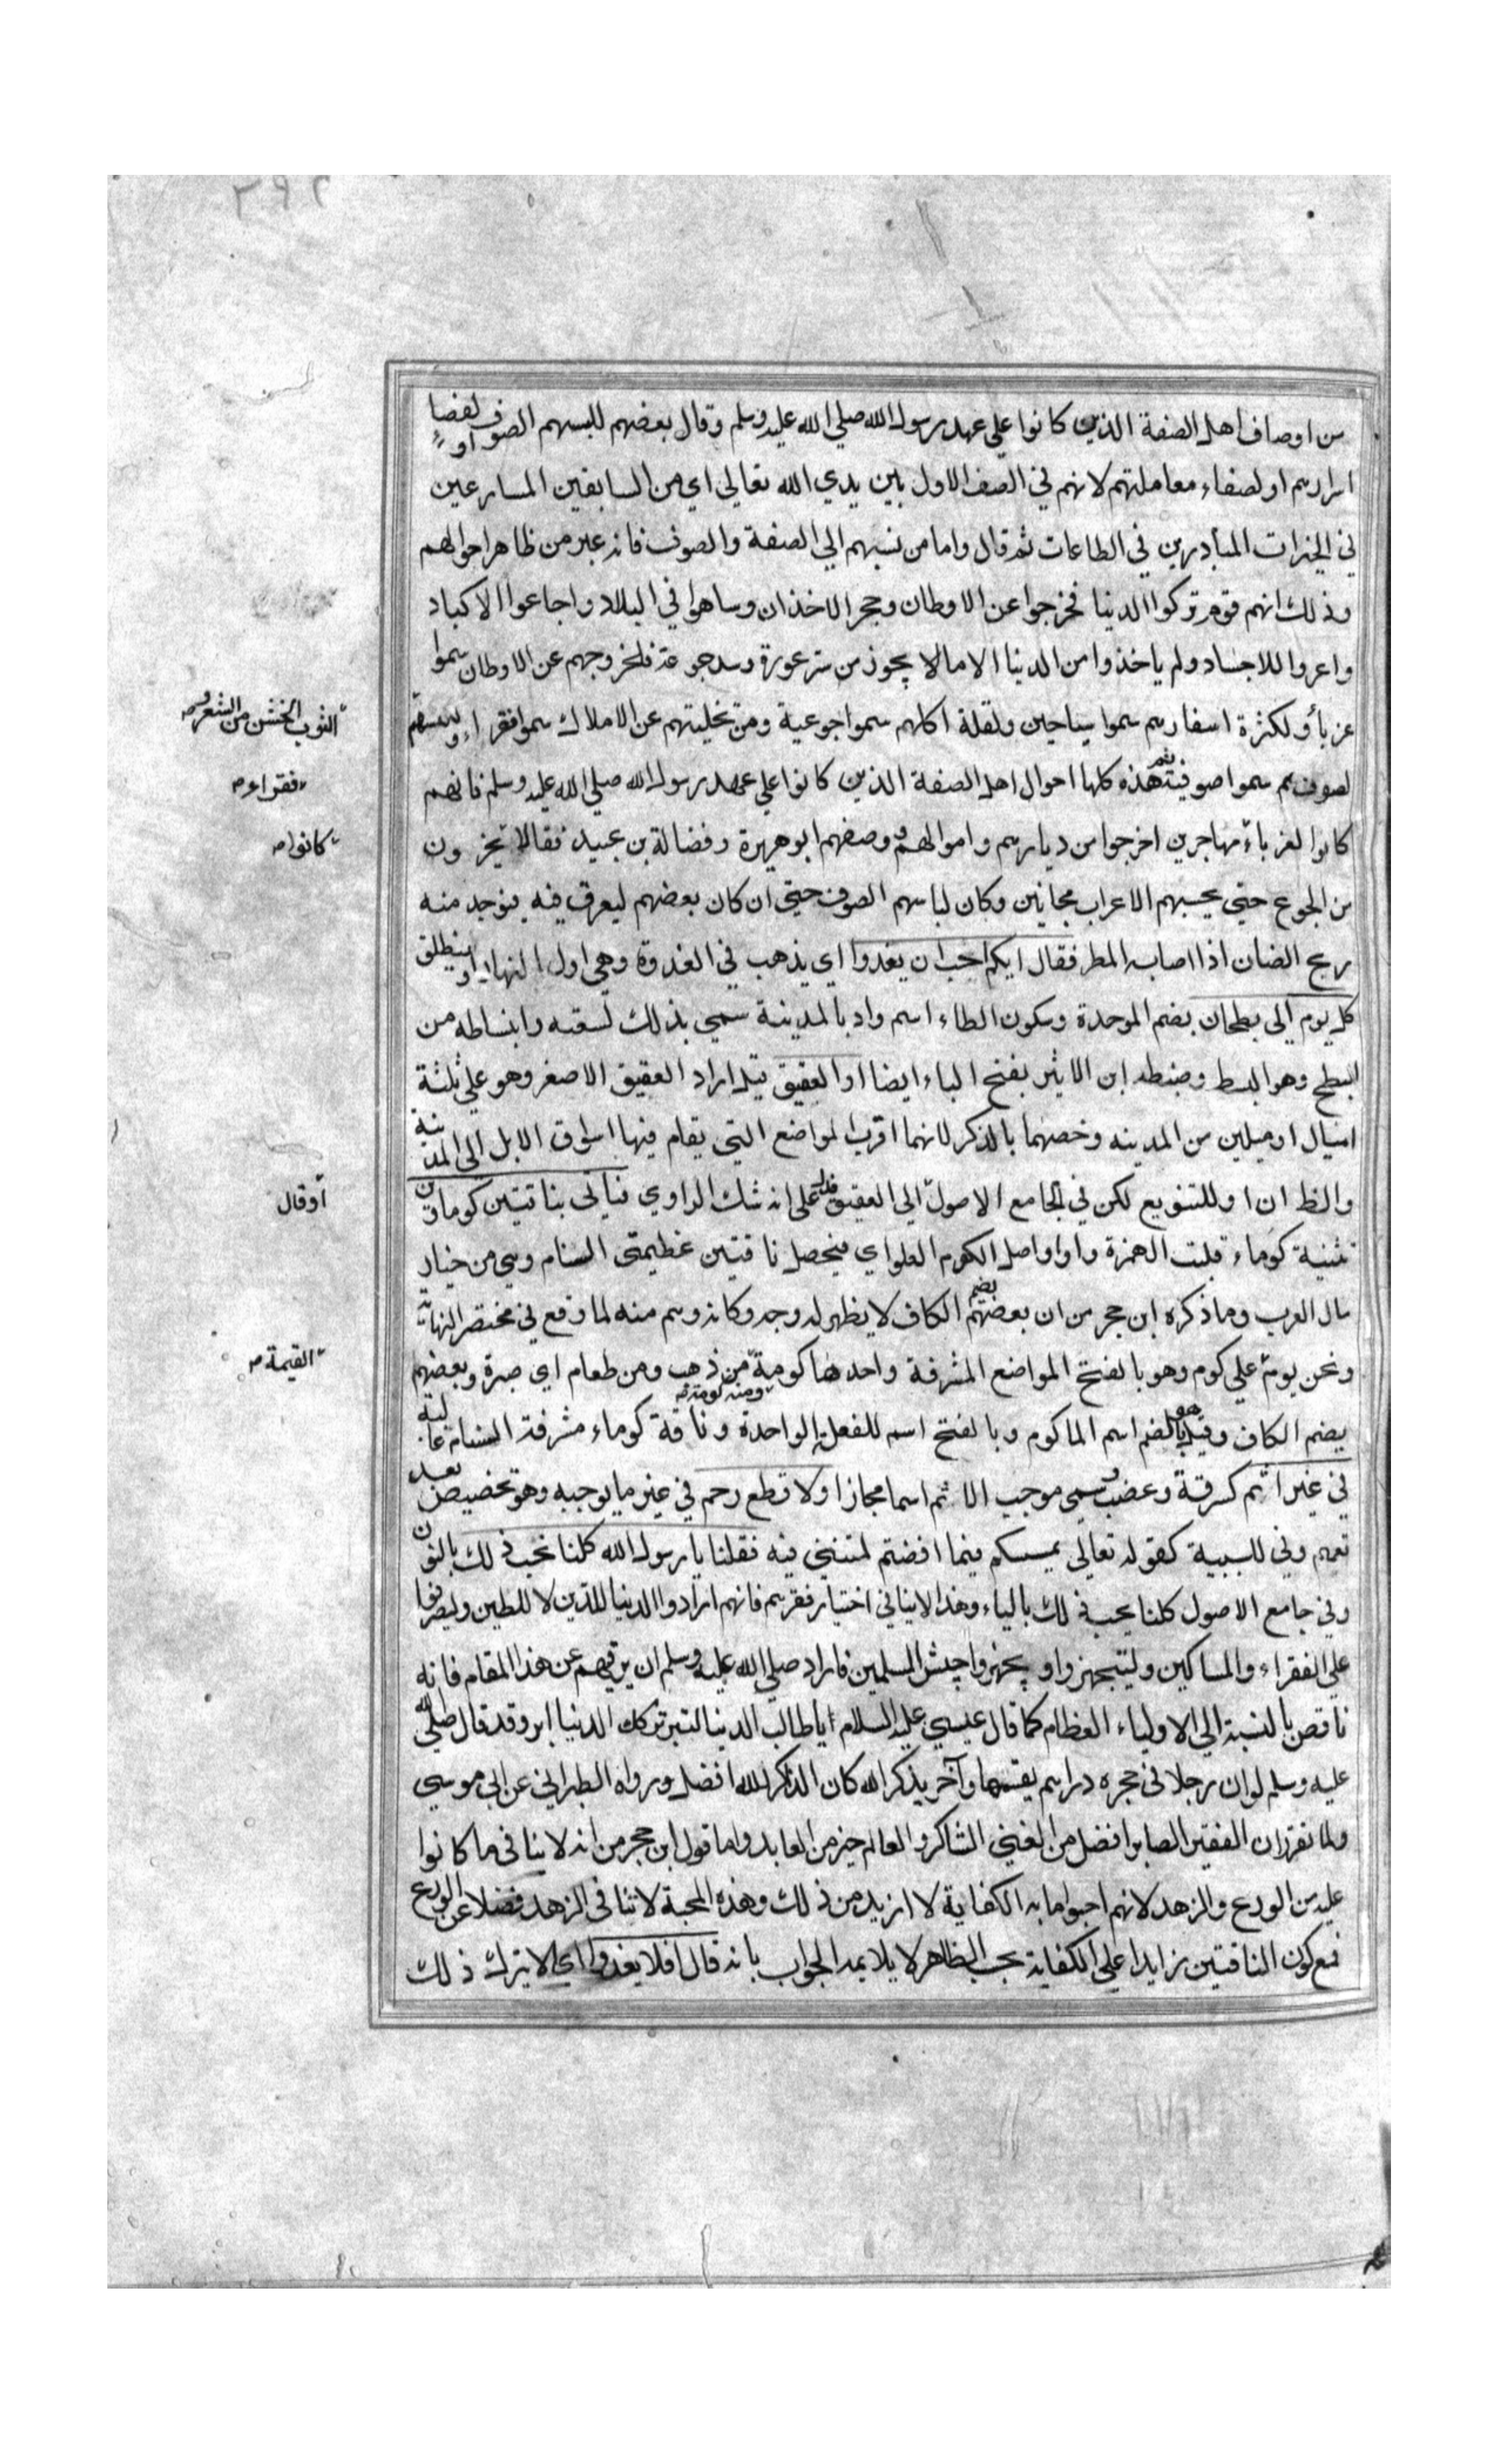 ٢٩٢
من اوصاف اهل الصفة الذين كانوا علي عهد رسول الله صلي الله عليه وسلم وقال بعضهم للبسهم الصوف او لصفا
اسرارهم او لصفاء معاملتهم لانهم في الصف الاول بين يدي الله تعالي اي من السابقين المسارعين
في الخيرات المبادرين في الطاعات ثم قال واما من نسبهم الي الصفة والصوف فانه عبر من ظاهر احوالهم
وذلك انهم قوم تركوا الدنيا فخرجوا عن الاوطان وهجر الاخذان وساهوا في البلاد واجاعوا الاكباد
واعروا للاجساد ولم ياخذوا من الدنيا الا ما لا يجوز من ستر عورة وسد جوعة فلخروجهم عن الاوطان سموا
غربا ولكثرة اسفارهم سموا سياحين ولقلة اكلهم سموا جوعية ومن تخليتهم عن الاملاك سموا فقراء ولبسهم
الثوب الخشن من الشعر و
لصوفهم سموا صوفية ثم هذه كلها احوال اهل الصفة الذين كانوا علي عهد رسول الله صلي الله عليه وسلم فانهم
فقراء
كانوا الغرباء مهاجرين اخرجوا من ديارهم واموالهم ووصفهم ابو هريرة وفضالة بن عبيد فقالا يخرون
كانوا
من الجوع حتي يحسبهم الاعراب مجانين وكان لباسهم الصوف حتي ان كان بعضهم ليعرق فيه فيوجد منه
ريح الضان اذا اصابه المطر فقال ايكم احب ان يغدوا اي يذهب في الغدوة وهي اول النهار او ينطلق
كل يوم الي بطحان بضم الموحدة وسكون الطاء اسم واد بالمدينة سمي بذلك لسعته وانبساطه من
البطح وهو البسط وضبطه ابن الاثير بفتح الباء ايضا او العقيق قيل اراد العقيق الاصغر وهو علي ثلثة
اميال او ميلين من المدينه وخصهما بالذكر لانهما اقرب المواضع التي يقام فيها اسواق الابل الي المدينة
والظ ان او للتنويع لكن في الجامع الاصول الي العقيق فدل علي انه شك الراوي فياتي بناقتين كوماوين
أو قال
تثنية كوماء قلبت الهمزة واوا واصل الكوم العلو اي فيحصل ناقتين عظيمتي السنام وهي من خيار
مال العرب وما ذكره ابن حجر من ان بعضهم بضم الكاف لا يظهر له وجه وكانه وهم منه لما وقع في مختصر النهاية
ونحن يوم علي كوم وهو بالفتح المواضع المشرفة واحدها كومة من ذهب ومن طعام اي صبرة وبعضهم
القيمة
ومنه كومة
بضم الكاف وقيل هو بالضم اسم لما كوم وبالفتح اسم للفعلة الواحدة وناقة كوماء مشرفة السنام عالية
في غير اثم كسرقة وغصب وسمي موجب الاثم اسما مجازا ولا قطع رحم في غير ما يوجبه وهو تخصيص بعد
تعميم وفي للسببية كقوله تعالي لمسكم فيما افضتم لمتنني فيه فقلنا يا رسول الله كلنا نحب ذلك بالنون
وفي جامع الاصول كلنا يحب ذلك بالياء وهذا لا ينافي اختيار فقرهم فانهم ارادوا الدنيا للدين لا للطين وليصرفوا
علي الفقراء والمساكين وليتجهزوا ويجهزوا جيش المسلمين فاراد صلي الله عليه وسلم ان يرقيهم عن هذا المقام فانه
ناقص بالنسبة الي الاولياء العظام كما قال عيسي عليه السلام ايا طالب الدنيا لتبر تركك الدنيا ابر وقد قال صلي الله
عليه وسلم لو ان رجلا في حجره دراهم يقسمها وآخر يذكر الله كان الذاكر لله افضل ورواه الطبراني عن ابي موسي
ولما تقرر ان الفقير الصابر افضل من الغني الشاكر والعالم خير من العابد واما قول ابن حجر من انه لا ينافي ما كانوا
عليه من الورع والزهد لانهم احبوا ما به الكفاية لا ازيد من ذلك وهذه المحبة لا تنافي الزهد فضلا عن الورع
فمع كون الناقتين زايدا علي الكفاية بحسب الظاهر لا يلايمه الجواب بانه قال افلا يغدوا اي الا يترك ذلك